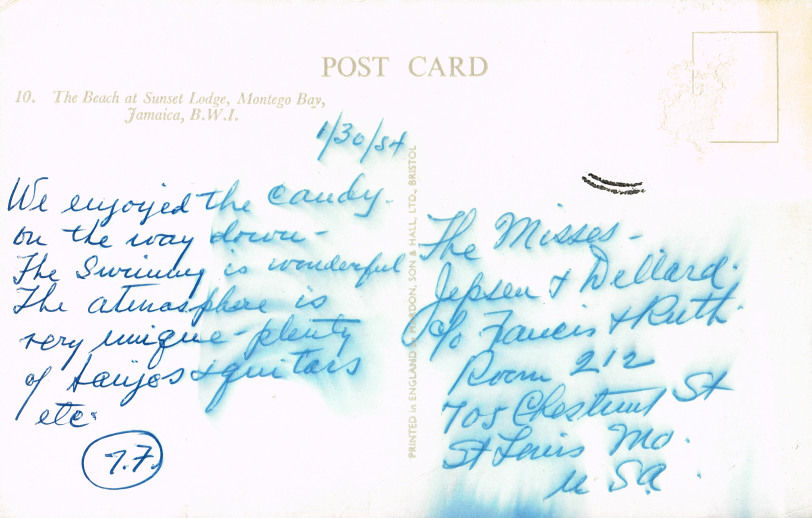 POST CARD
10. The Beach at Sunset Lodge, Montego Bay,
Jamaica, B.W.I.
1/30/54
We enjoyed the candy
on the way down -
The Swimmg is wonderful
The atmosphere is
very unique - plenty
of banjos & guitars
etc.
T.F.
PRINTED in ENGLAND by HARDON, SON & HALL, LTD., BRISTOL
The Misses -
Jepsen & Dellard.
c/o Francis & Ruth.
Room 212
705 Chestnut St
St Louis Mo.
U SA.